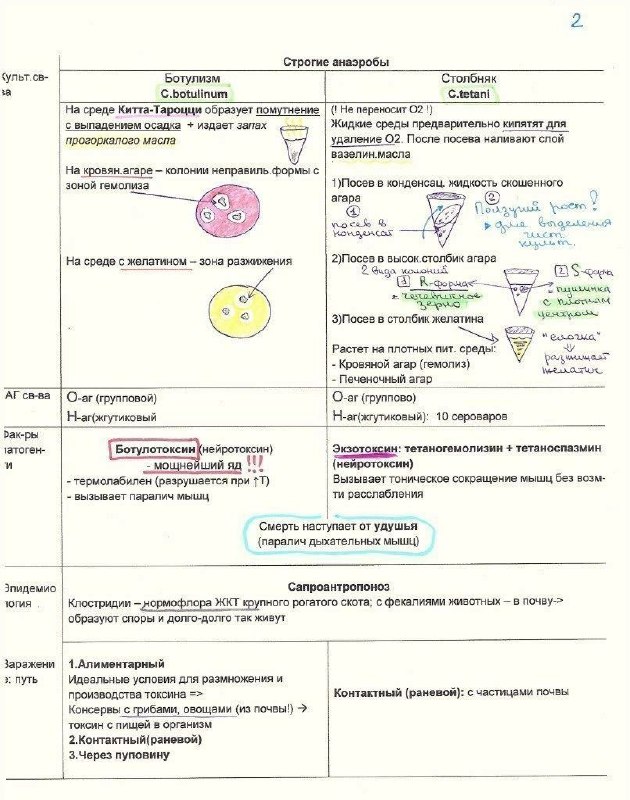 2
Строгие анаэробы
Культ.св-
ва
Ботулизм
C.botulinum
Столбняк
C.tetani
На среде Китта-Тароцци образует помутнение
с выпадением осадка + издает запах
прогоркалого масла
На кровян.агаре – колонии неправиль.формы с
зоной гемолиза
На среде с желатином – зона разжижения
(! Не переносит О2 !)
Жидкие среды предварительно кипятят для
удаление О2. После посева наливают слой
вазелин.масла
1)Посев в конденсац. жидкость скошенного
агара
1
посев в
конденсат
2
Ползучий рост!
для выделения
чист
культ.
2)Посев в высок.столбик агара
2 вида колоний
1 R-форма
чечевичное
зерно
2 S-форма
пушинка
с плотным
центром
3)Посев в столбик желатина
"елочка"
разжижает
желатин
Растет на плотных пит. среды:
- Кровяной агар (гемолиз)
- Печеночный агар
АГ св-ва
О-аг (групповой)
Н-аг(жгутиковый)
О-аг (групново)
Н-аг(жгутиковый): 10 сероваров
Фак-ры
патоген-
ти
Ботулотоксин (нейротоксин)
- мощнейший яд !!!
- термолабилен (разрушается при ↑Т)
- вызывает паралич мышц
Экзотоксин: тетаногемолизин + тетаноспазмин
(нейротоксин)
Вызывает тоническое сокращение мышц без возм-
ти расслабления
Смерть наступает от удушья
(паралич дыхательных мышц)
Эпидемио
логия
Сапроантропоноз
Клостридии – нормофлора ЖКТ крупного рогатого скота; с фекалиями животных – в почву->
образуют споры и долго-долго так живут
Заражени
е: путь
1.Алиментарный
Идеальные условия для размножения и
производства токсина =>
Консервы с грибами, овощами (из почвы!) →
токсин с пищей в организм
2.Контактный(раневой)
3.Через пуповину
Контактный (раневой): с частицами почвы